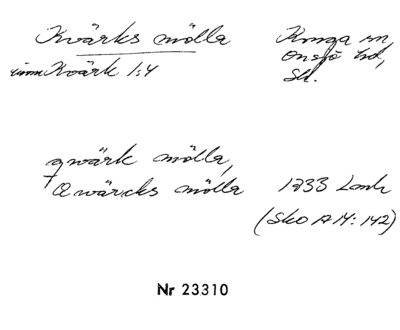 Kvärks mölla Konga sn,
Onsjö hd,
inom Kvärk 1:4 Sk.
qwärk mölla,
Qwärcks mölla 1733 Lonh
(Sko A IV: 142)
Nr 23310